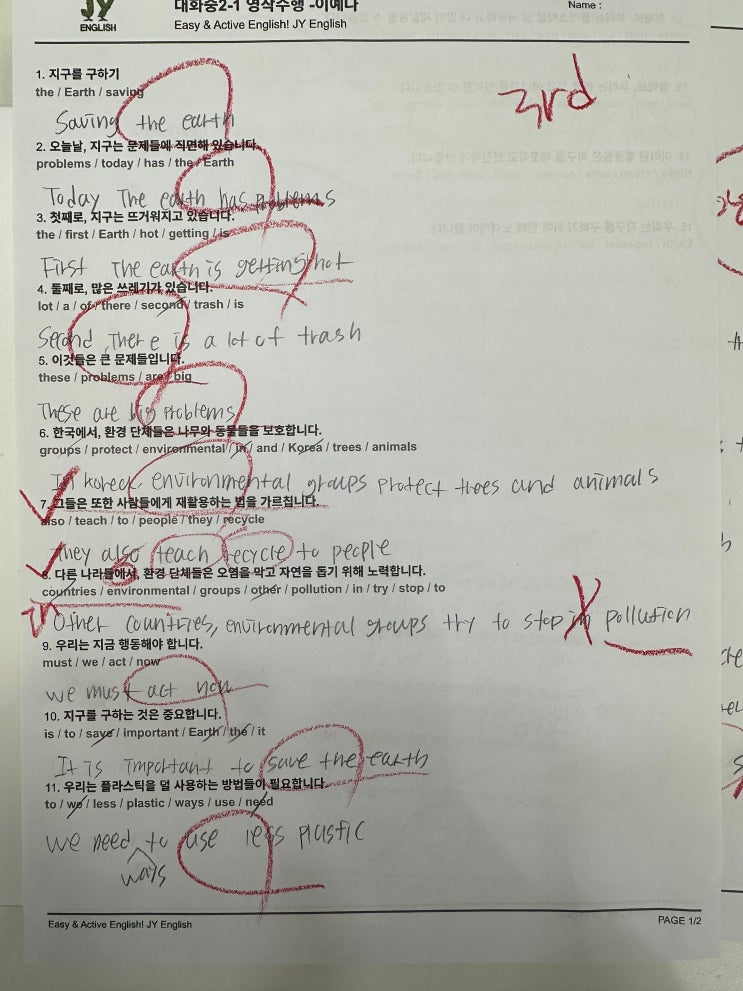 JY
ENGLISH
대화중2-1 영작수행 -이예나
Easy & Active English! JY English
Name :
3rd
1. 지구를 구하기
the / Earth / saving
Saving the earth
2. 오늘날, 지구는 문제들에 직면해 있습니다.
problems / today / has / the / Earth
Today The earth has problems
3. 첫째로, 지구는 뜨거워지고 있습니다.
the / first / Earth / hot / getting / is
First The earth is getting hot
4. 둘째로, 많은 쓰레기가 있습니다.
lot / a / of / there / second / trash / is
Second, There is a lot of trash
5. 이것들은 큰 문제들입니다.
these / problems / are / big
These are big problems
6. 한국에서, 환경 단체들은 나무와 동물들을 보호합니다.
groups / protect / environmental / in / and / Korea / trees / animals
In korea, environmental groups protect trees and animals
7. 그들은 또한 사람들에게 재활용하는 법을 가르칩니다.
also / teach / to / people / they / recycle
They also teach recycle to people
8. 다른 나라들에서, 환경 단체들은 오염을 막고 자연을 돕기 위해 노력합니다.
countries / environmental / groups / other / pollution / in / try / stop / to
in Other countries, environmental groups try to stop in pollution
9. 우리는 지금 행동해야 합니다.
must / we / act / now
we must act now
10. 지구를 구하는 것은 중요합니다.
is / to / save / important / Earth / the / it
It is important to save the earth
11. 우리는 플라스틱을 덜 사용하는 방법들이 필요합니다.
to / we / less / plastic / ways / use / need
we need to use less plastic
ways
Easy & Active English! JY English
PAGE 1/2